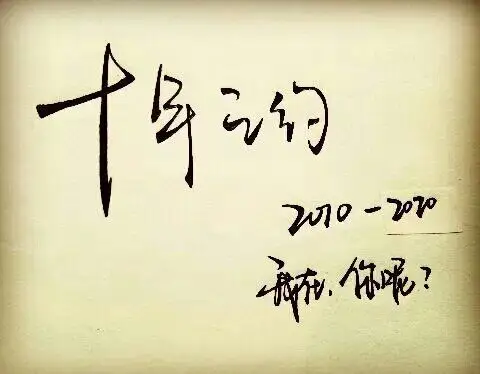 十年之约
2010-2020
我在,你呢?